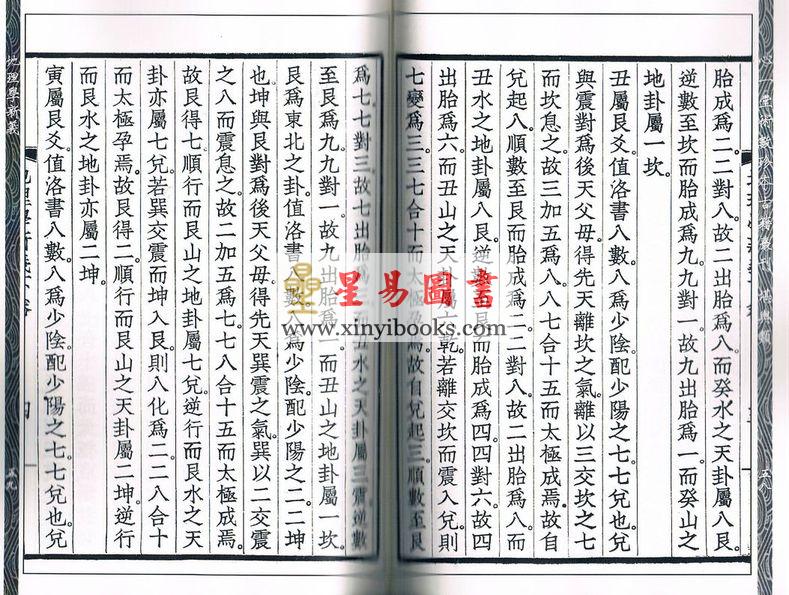 胎成爲二。二對八。故二出胎爲八。而癸水之天卦屬八艮。
逆數至坎而胎成爲九。九對一。故九出胎爲一。而癸山之
地卦屬一坎。
丑屬艮爻。值洛書八數。八爲少陰。配少陽之七。七兌也。兌
與震對。爲後天父母。得先天離坎之氣。離以三交坎之七。
而坎息之。故三加五爲八。八七合十五而太極成焉。故自
兌起八。順數至艮而胎成爲二。二對八。故二出胎爲八。而
丑水之地卦屬八艮。逆數至艮而胎成爲四。四對六。故四
出胎爲六。而丑山之天卦屬六乾。若離交坎而震入兌。則
七變爲三。三七合十而太極孕焉。故自兌起三。順數至艮
爲七。七對三。故七出胎爲三。而丑水之天卦屬三震。逆數
至艮爲九。九對一。故九出胎爲一。而丑山之地卦屬一坎。
艮爲東北之卦。值洛書八數。八爲少陰。配少陽之二。二坤
也。坤與艮對。爲後天父母。得先天巽震之氣。巽以二交震
之八而震息之。故二加五爲七。七八合十五而太極成焉。
故艮得七。順行而艮山之地卦屬七兌。逆行而艮水之天
卦亦屬七兌。若巽交震而坤入艮。則八化爲二。二八合十
而太極孕焉。故艮得二。順行而艮山之天卦屬二坤。逆行
而艮水之地卦亦屬二坤。
寅屬艮爻。值洛書八數。八爲少陰。配少陽之七。七兌也。兌
地理學新義
五九
星易圖書
www.xinyibooks.com